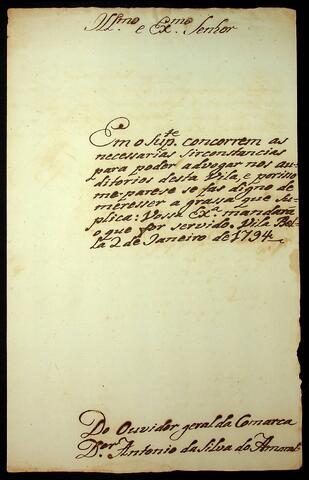 Ill.mo e Ex.mo Senhor
Em o Sup.te concorrem as
necessarias sirconstancias
para poder advogar nos au-
ditorios desta Vila, e por isso
me parese se fas digno de
meresser a grassa que su-
plica: Vossa Ex.a mandará
o que for servido. Vila Bel-
la 2 de Janeiro de 1794
Do Ouvidor geral da Comarca
D.or Antonio da Silva do Amaral